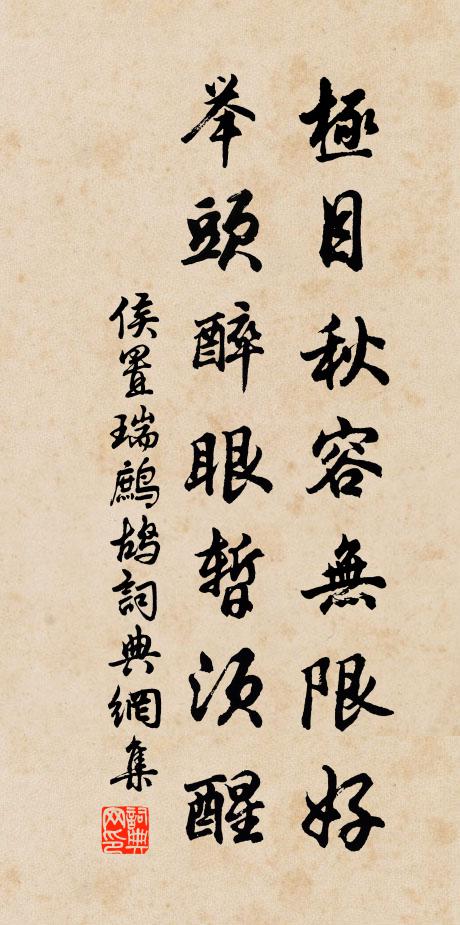 極目秋容無限好
举頭醉眼暫須醒
侯置瑞鷓鴣詞典網集
詞典网印